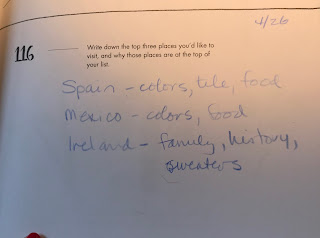 4/26
116
Write down the top three places you'd like to
visit, and why those places are at the top of
your list.
Spain - colors, tile, food
Mexico - colors, food
Ireland - family, history,
sweaters